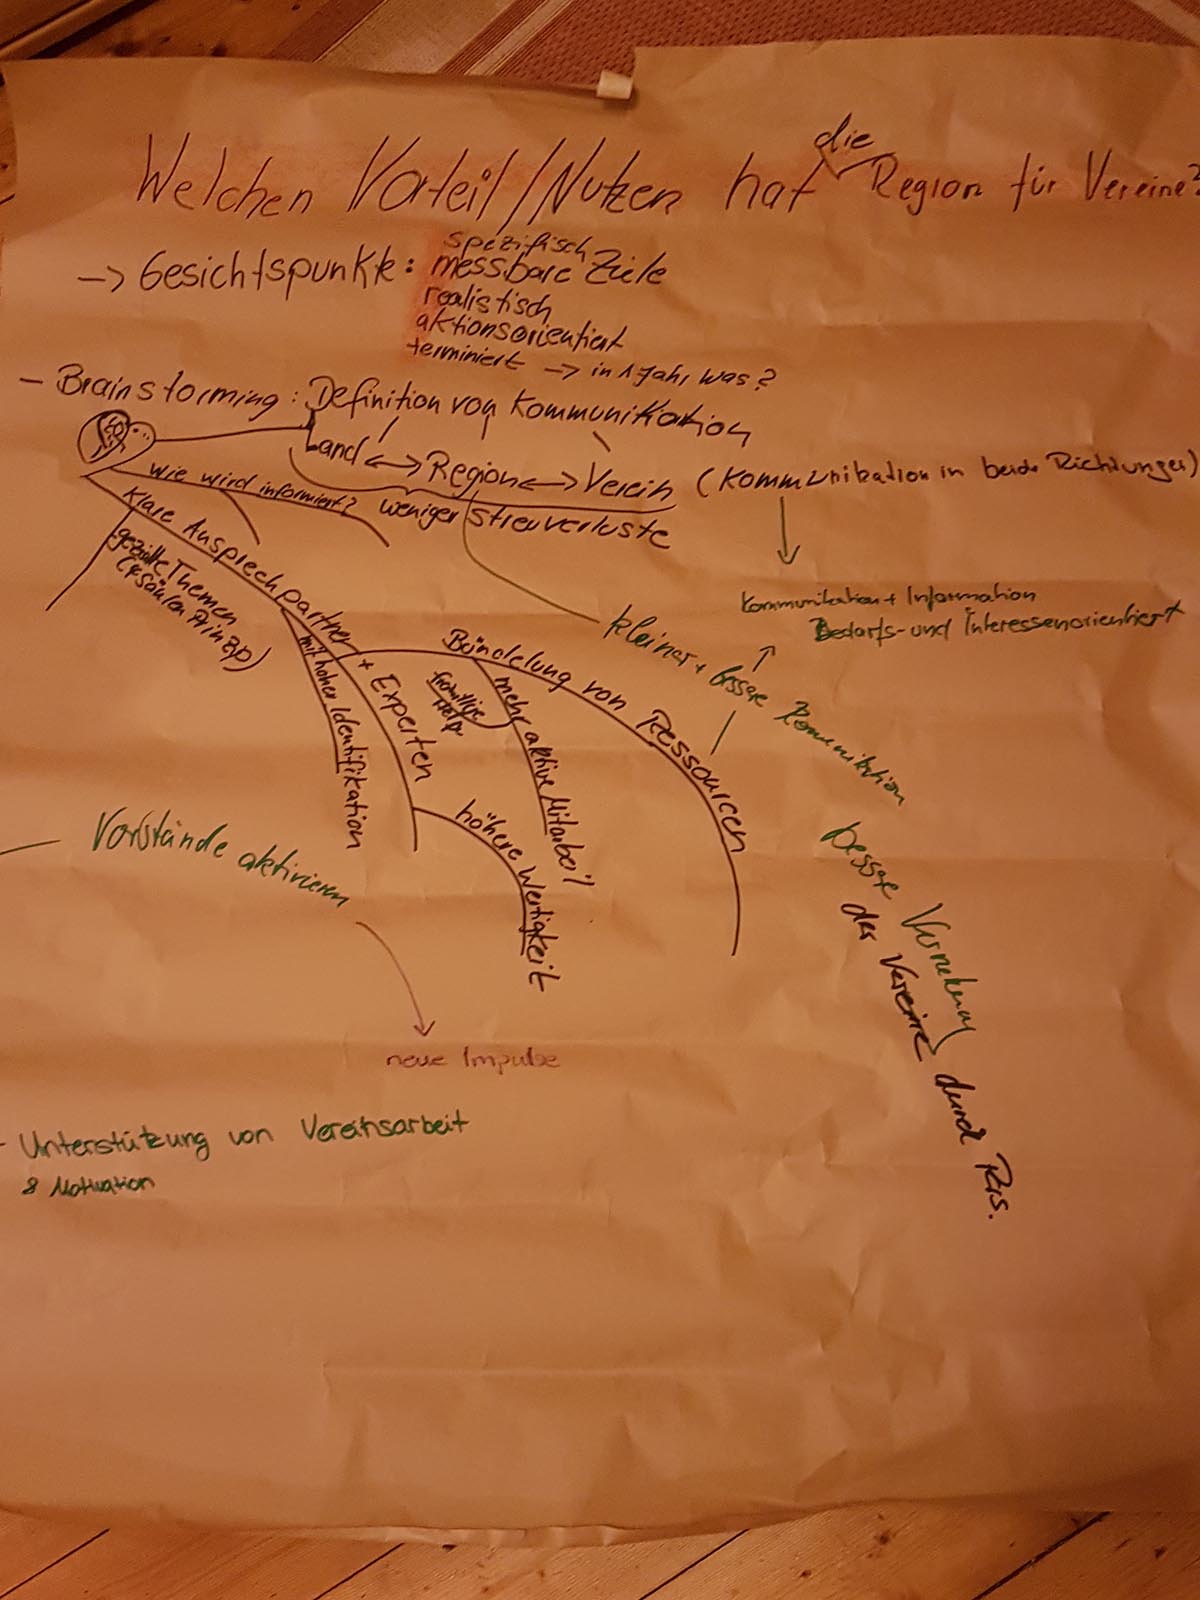 die
Welchen Vorteil/Nutzen hat Region für Vereine?
spezifisch
-> Gesichtspunkte: messbare Ziele
realistisch
aktionsorientiert
terminiert -> in 1 Jahr, was?
- Brainstorming: Definition von Kommunikation
Land <-> Region <-> Verein (Kommunikation in beide Richtungen)
wie wird informiert?
weniger Streuverluste
Klare Ansprechpartner + Experten
gezielte Themen
Säulen Prinzip)
mit hoher Identifikation
Kommunikation + Information
Bedarfs- und Interessenorientiert
kleiner + bessere Kommunikation
Bündelung von Ressourcen
freiwillige
Help
mehr aktive Mitarbeit
höhere Wertigkeit
Vorstände aktivieren
bessere Vernetzung
der Vereine durch
neue Impulse
- Unterstützung von Vereinsarbeit
& Motivation